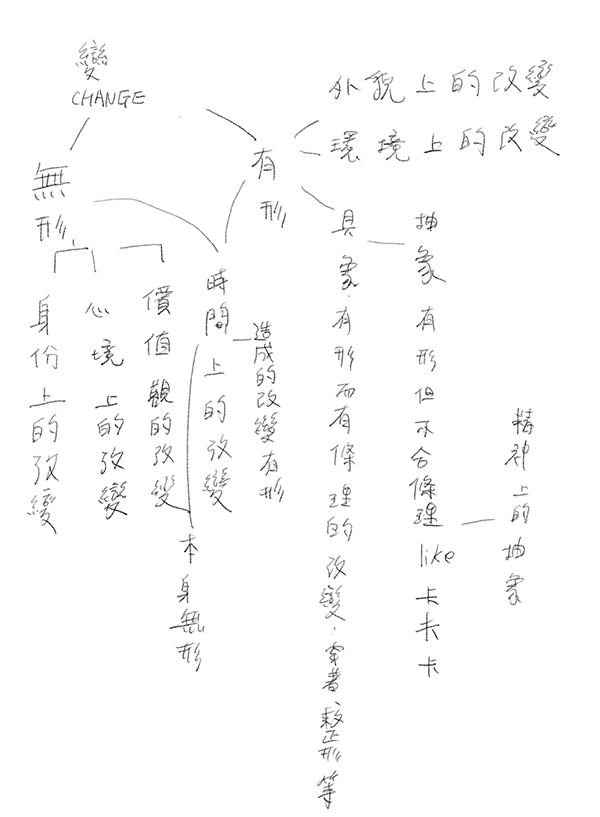 變
CHANGE
無形
身份上的改變
心境上的改變
價值觀的改變
有形
時間上的改變
造成的改變有形
本身無形
外貌上的改變
環境上的改變
具象·有形而有條理的改變·穿著、整形等
抽象 有形但不合條理 like 卡夫卡
精神上的抽象